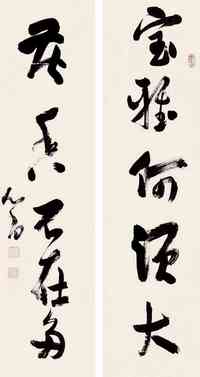 室雅何須大
花香不在多
心畬